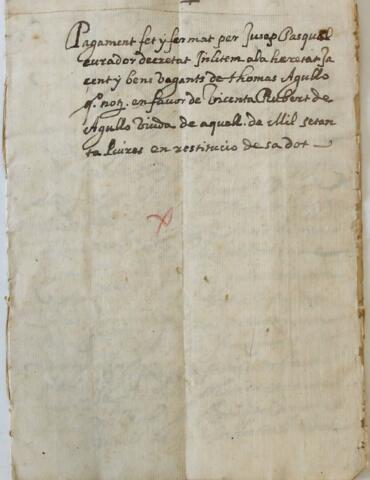 Pagament fet y fermat per Jusep Pasqual
curador decretat Jnlitem ala heretat Ja
cent y bens vagants de thomas Agullo
q.º notj. en favor de Vicenta Rubert de
Agullo viuda de aquell. de Mil setan
ta Lliures en restitucio de sa dot